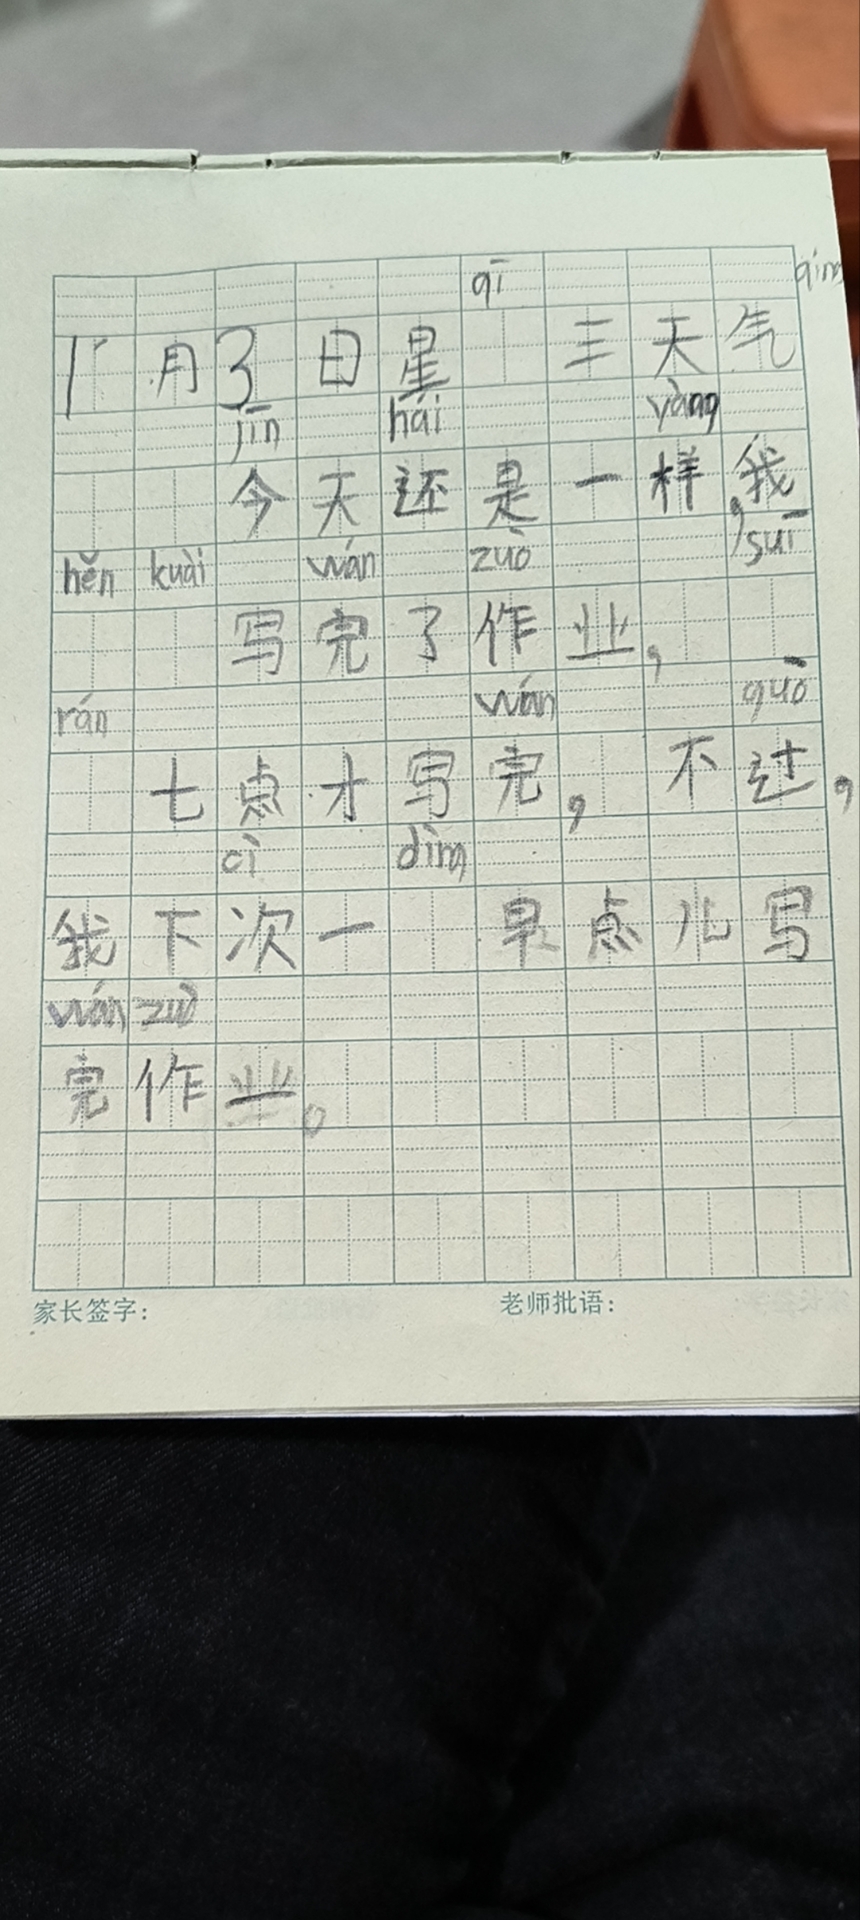 qī qín
1月3日星 三天气
jīn hái yàng
今天还是一样,我
hěn kuài wán zuò suī
写完了作业,
rán wán guò
七点才写完,不过,
cì dìn
我下次一 早点儿写
wán zuò
完作业。
家长签字: 老师批语: